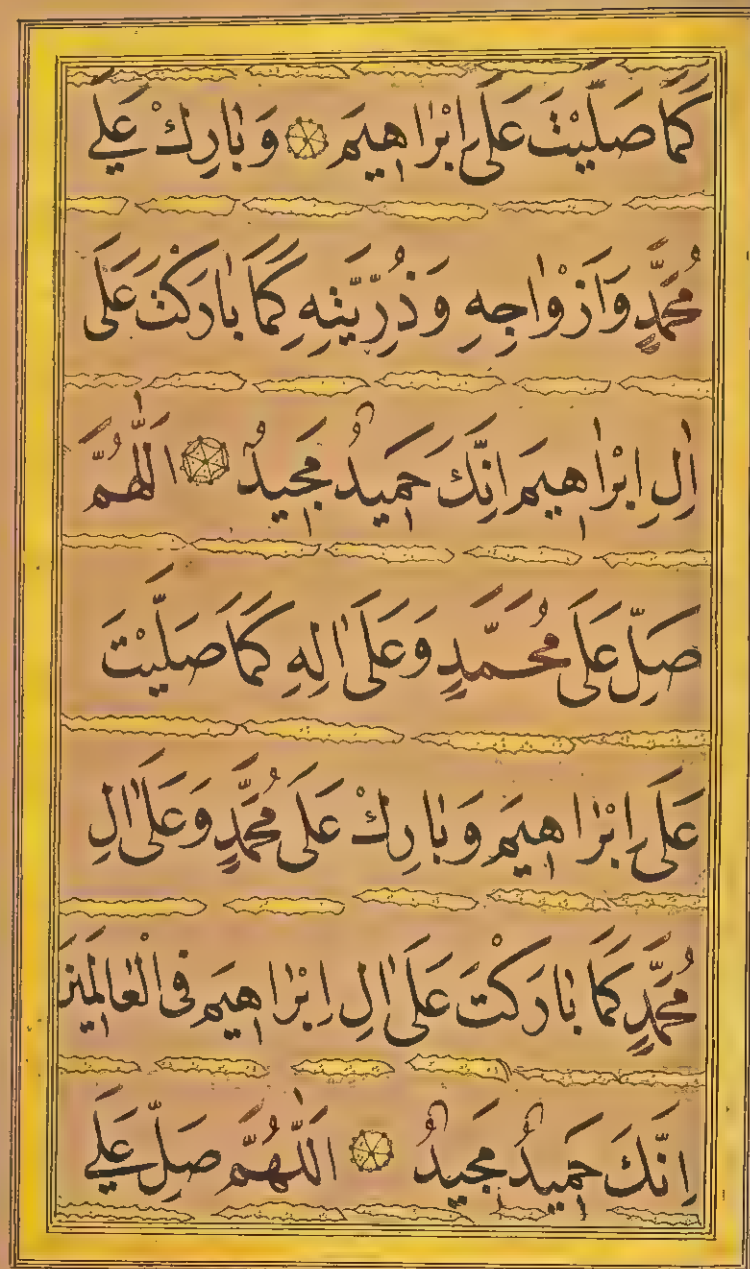 كَمَا صَلَّيْتَ عَلَى اِبْرٰاهِيمَ وَبٰارِكْ عَلٰي
مُحَمَّدٍ وَاَزْوٰاجِهِ وَذُرِّيَّتِهِ كَمَا بٰارَكْتَ عَلَى
اٰلِ اِبْرٰاهِيمَ اِنَّكَ حَمِيدٌ مَجِيدٌ اَللّٰهُمَّ
صَلِّ عَلَى مُحَمَّدٍ وَعَلَى اٰلِهِ كَمَا صَلَّيْتَ
عَلَى اِبْرٰاهِيمَ وَبٰارِكْ عَلَى مُحَمَّدٍ وَعَلَى اٰلِ
مُحَمَّدٍ كَمَا بٰارَكْتَ عَلَى اٰلِ اِبْرٰاهِيمَ فِى الْعٰالَمِينَ
اِنَّكَ حَمِيدٌ مَجِيدٌ اَللّٰهُمَّ صَلِّ عَلٰي